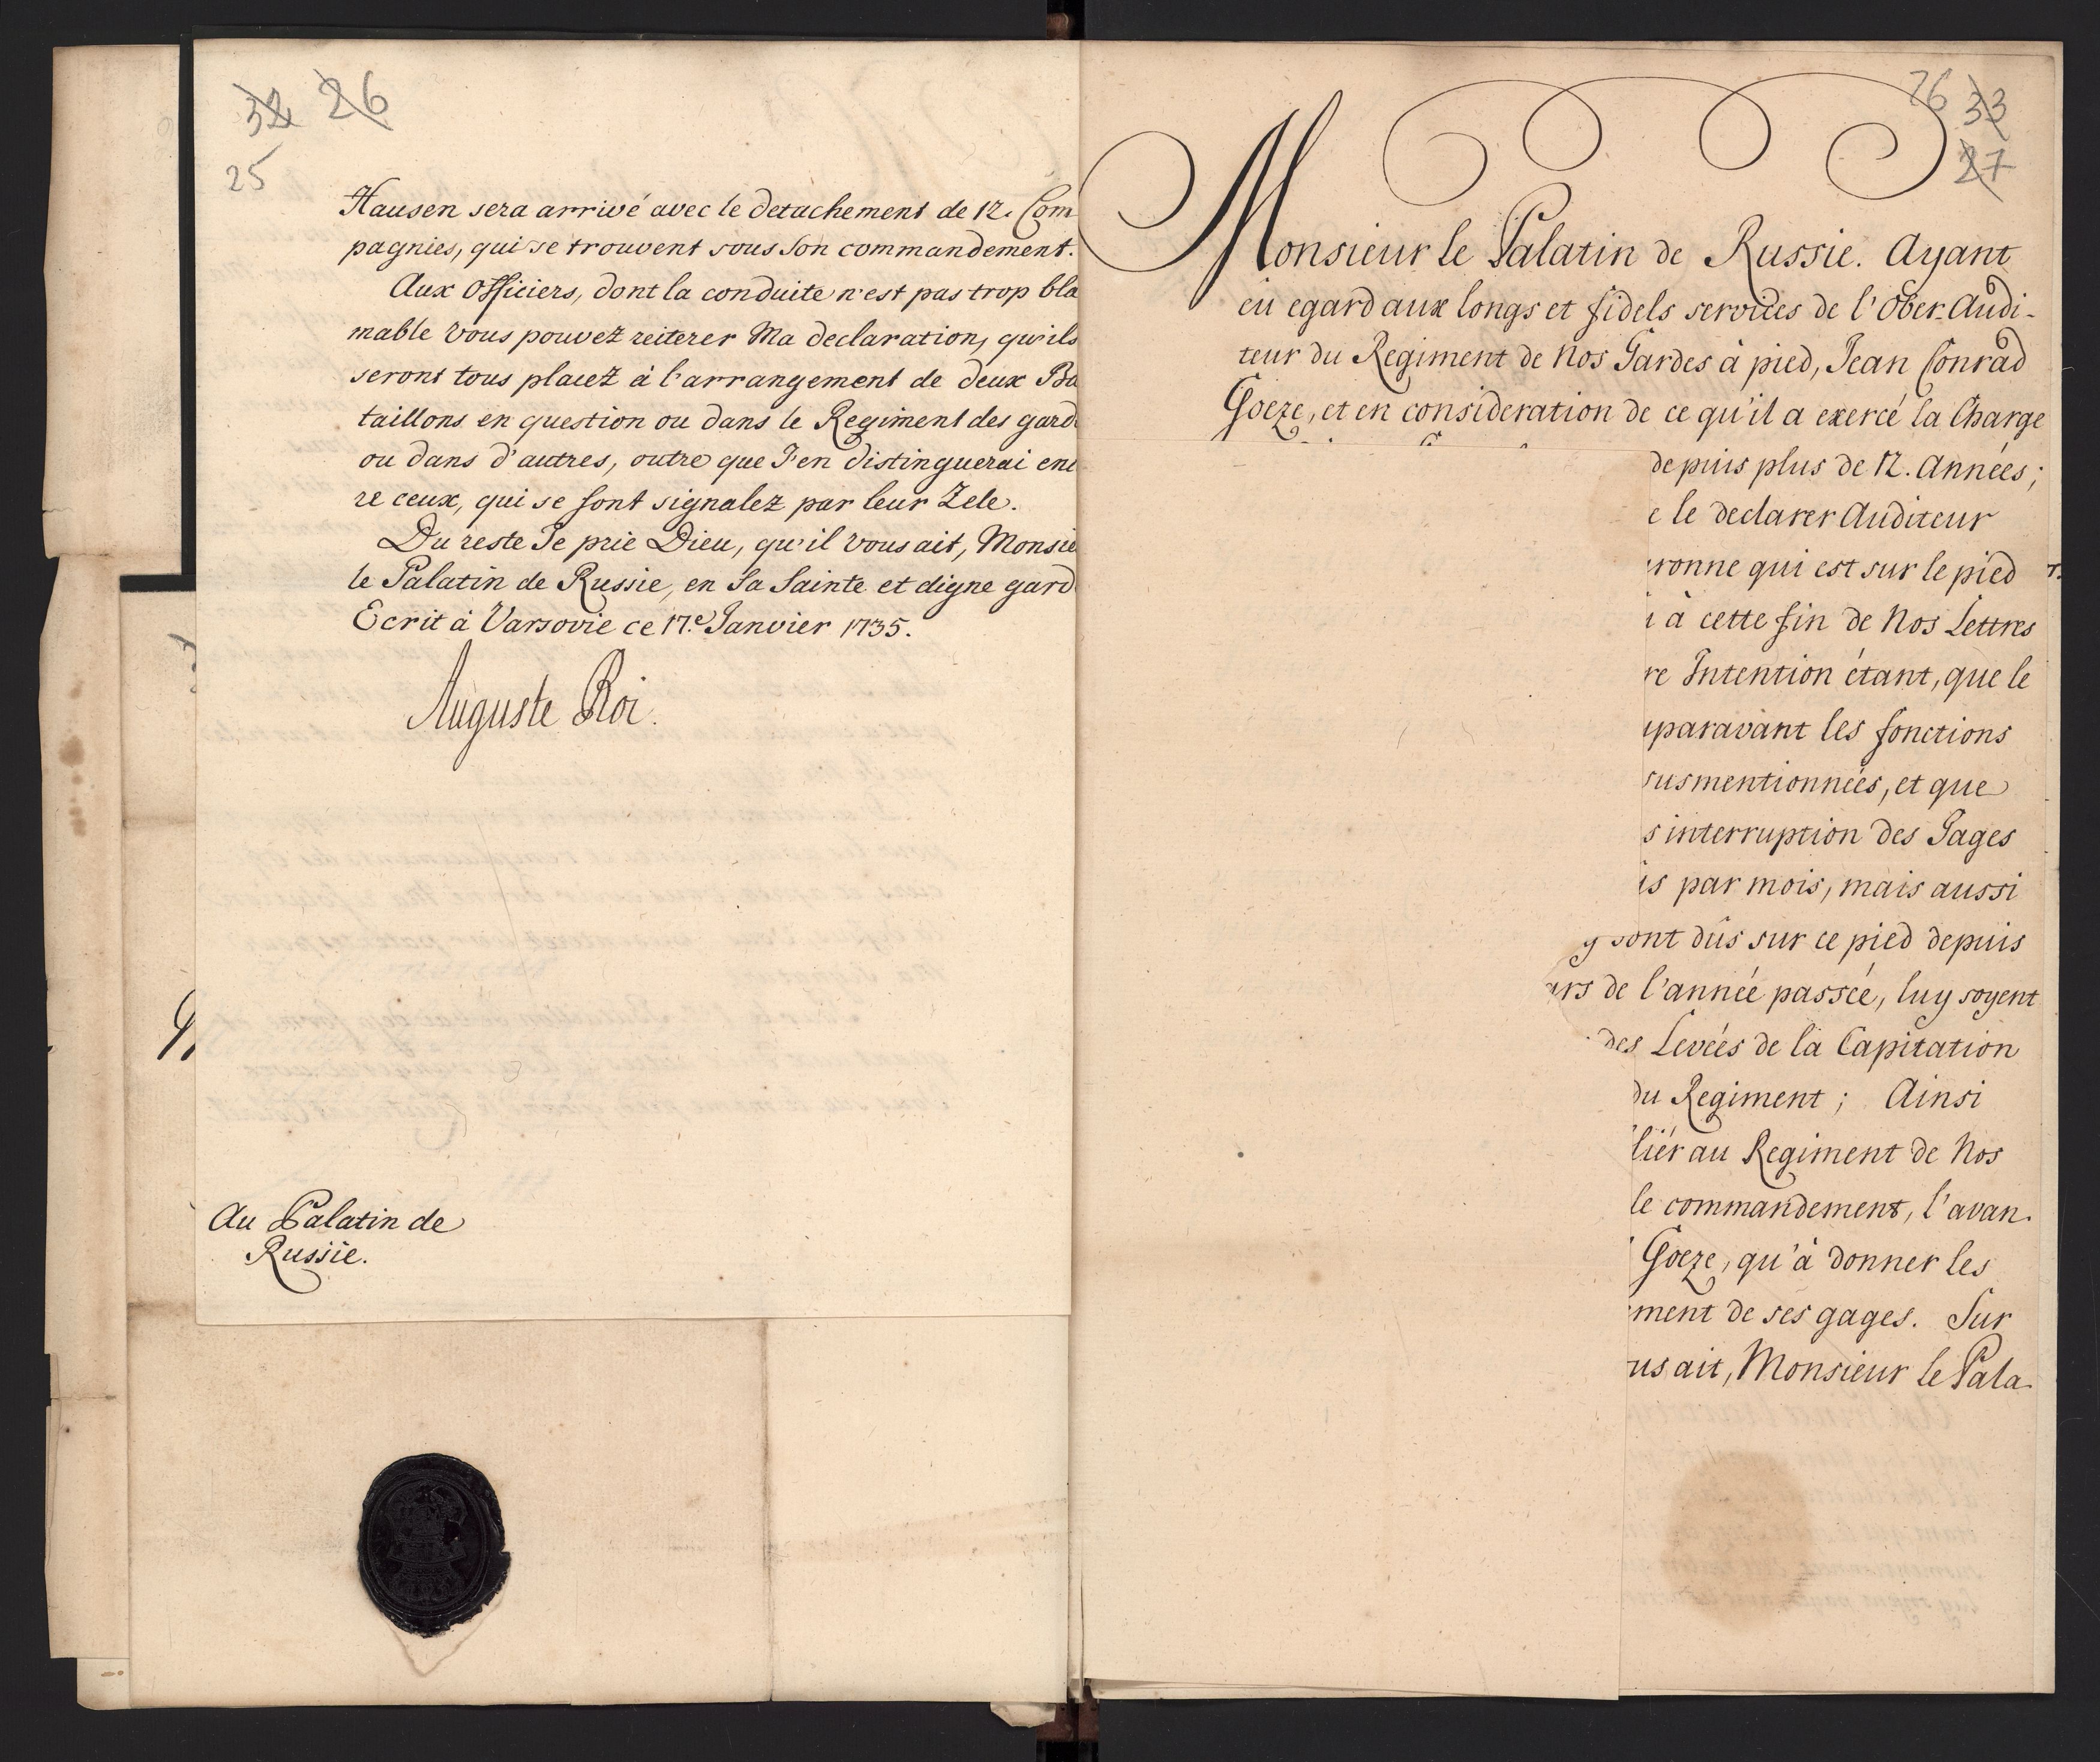 32 26
25
Hausen sera arrivé avec le detachement de 12. Com
pagnies, qui se trouvent sous Son commandement.
Aux Officiers, dont la conduite n'est pas trop bla
mable Vous pouvez reiterer Ma declaration, qu'ils
seront tous placez à l'arrangement de deux Ba
taillons en question ou dans le Regiment des gard
ou dans d'autres, outre que J'en distinguerai enc
re ceux, qui se sont signalez par leur Zele.
Du reste Je prie Dieu, qu'il Vous ait, Monsie
le Palatin de Russie, en Sa Sainte et digne gard
Ecrit à Varsovie ce 17.e Janvier 1735.
Auguste Roi.
Au Palatin de
Russie.
26 33
27
Monsieur le Palatin de Russie. Ayant
eu egard aux longs et fidels services de l'Ober-Audi-
teur du Regiment de Nos Gardes à pied, Jean Conrad
Goeze, et en consideration de ce qu'il a exercé la Charge
depuis plus de 12. Années;
e le declarer Auditeur
ronne qui est sur le pied
i à cette fin de Nos Lettres
re Intention étant, que le
uparavant les fonctions
susmentionneés, et que
s interruption des Gages
is par mois, mais aussi
y sont dûs sur ce pied depuis
ars de l'anneé passeé, luy soyent
des Leveés de la Capitation
du Regiment; Ainsi
liér au Regiment de Nos
le commandement, l'avan-
Goeze, qu'à donner les
ment de ses gages. Sur
us ait, Monsieur le Pala-